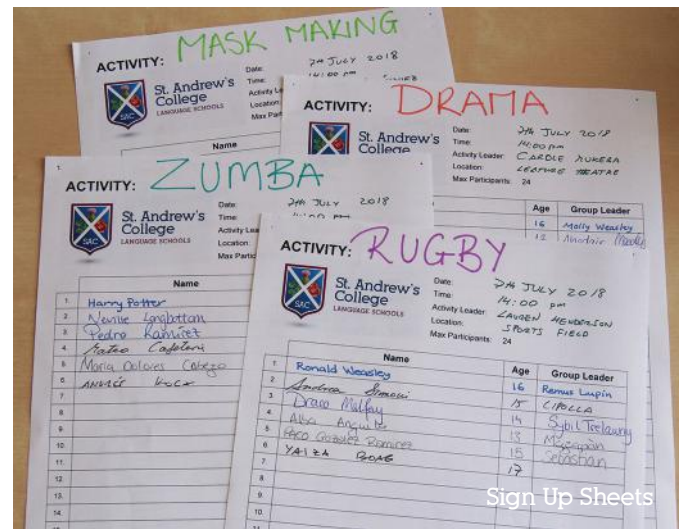 ACTIVITY: MASK MAKING
St. Andrew's College
LANGUAGE SCHOOLS
SAC
Date: 7th JULY 2018
Time: 14:00 pm
Activity Le
Location:
Max Part
Name
ACTIVITY: DRAMA
St. Andrew's
College
Date: 7th JULY 2018
Time: 14:00 pm
Activity Leader:
Location: LECTURE THEATRE
Max Participants: 24
Age Group Leader
16 Molly Weasley
13
ACTIVITY: ZUMBA
St. Andrew's
College
LANGUAGE SCHOOLS
SAC
Date: 7th JULY 2018
Time:
Activity Lea
Location:
Max Partic
Name
1. Harry Potter
2. Neville Longbottom
3. Pedro Ramirez
4. Mateo Cafetera
5. Maria Dolores Cabeza
6.
7.
8.
9.
10.
11.
12.
13.
14.
ACTIVITY: RUGBY
St. Andrew's
College
LANGUAGE SCHOOLS
SAC
Date: 7th JULY 2018
Time: 14:00 pm
Activity Leader: LAUREN HENDERSON
Location: SPORTS FIELD
Max Participants: 24
Name Age Group Leader
1. Ronald Weasley 16 Remus Lupin
2. Andrea Simoni 15 CIPOLLA
3. Draco Malfoy 14 Sybil Trelawny
4. Alba Anguita 13 Mazapán
5. PACO 15 Sebastian
6. YAIZA 17
7.
8.
9.
10.
Sign Up Sheets